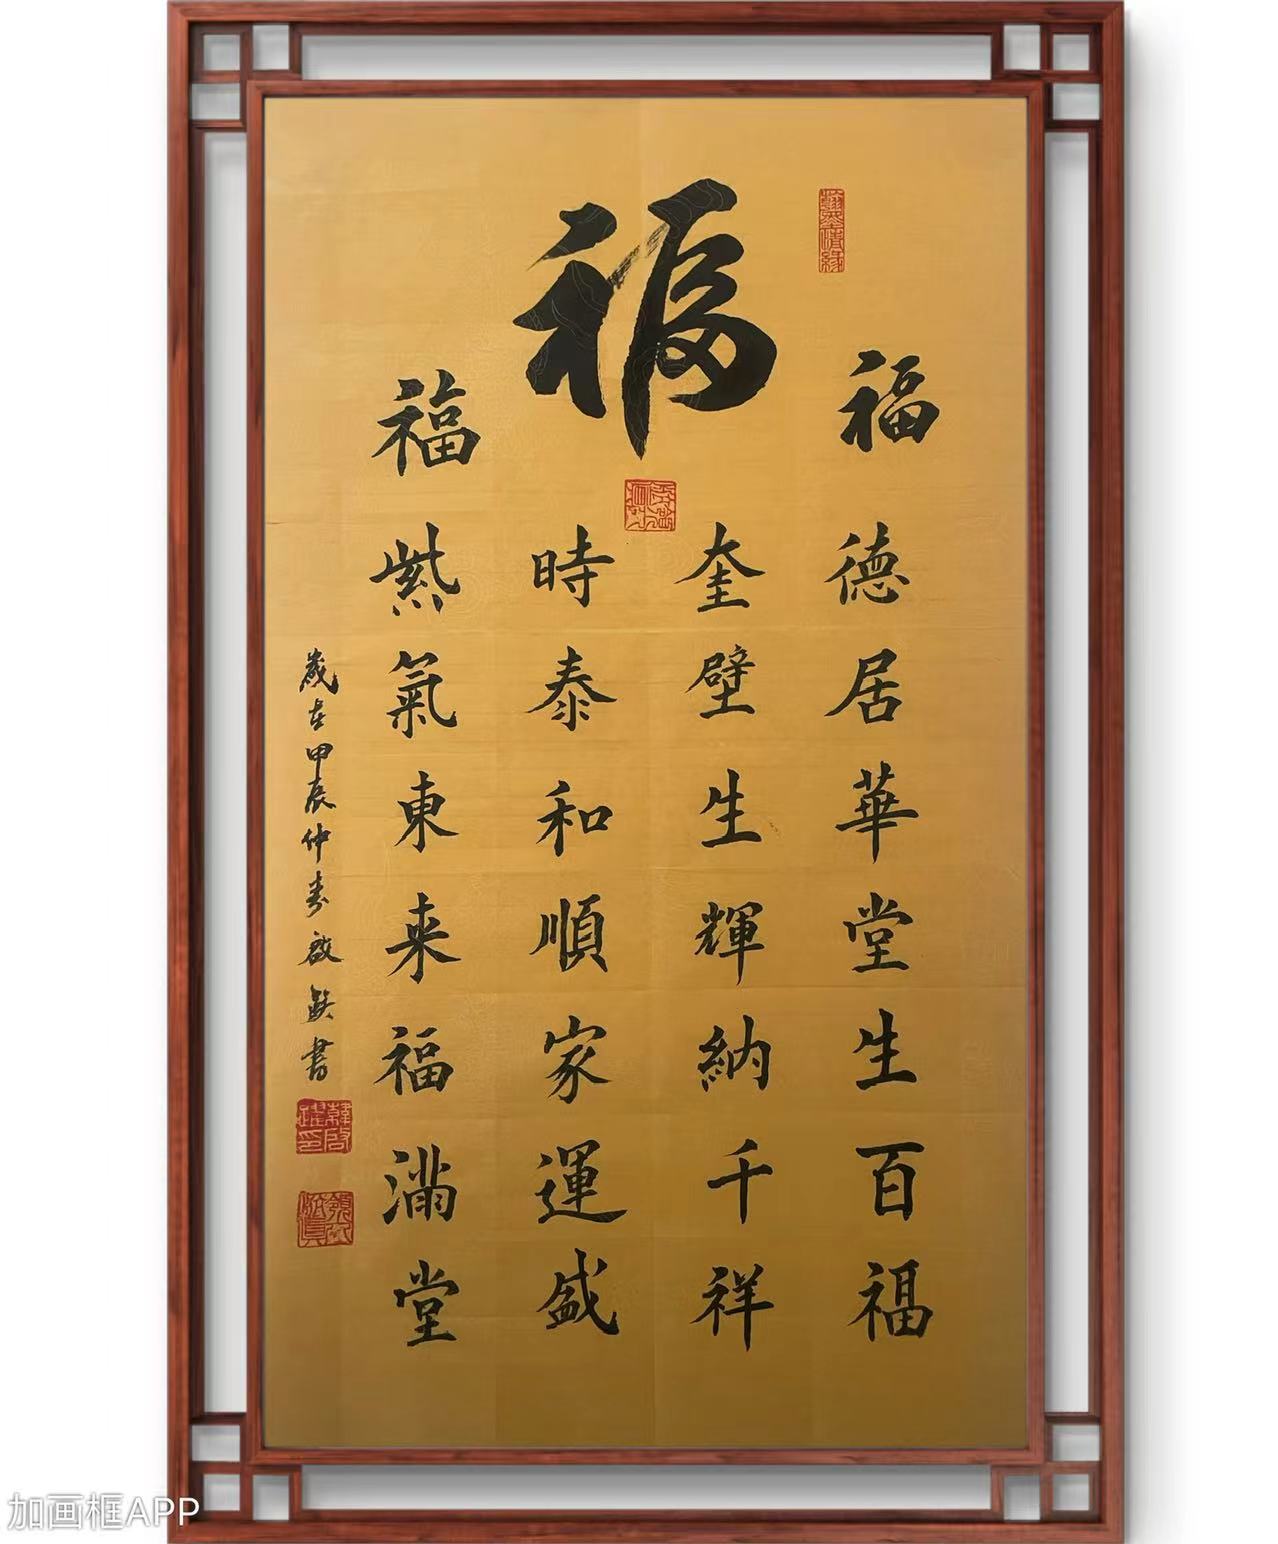 福
福
德居華堂生百福
奎壁生輝納千祥
時泰和順家運盛
福
紫氣東来福滿堂
歲在甲辰仲春啟躍書
翰墨情緣
加画框APP